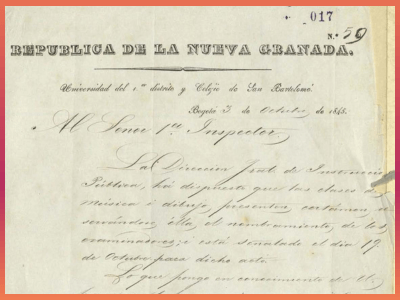 017
N.° 59
REPUBLICA DE LA NUEVA GRANADA.
Universidad del 1.er distrito y Colejio de San Bartolomé
Bogotá 3 de Octubre de 1845.
Al Señor 1er Inspector
La Direccion jral de Instruccion
Pública, ha dispuesto que las clases de
música i dibujo, presenten certámen re
servándose ella, el nombramiento, de los
examinadores; i está señalado el dia 19
de Octubre para dicho acto.
Lo que pongo en conocimiento de U.